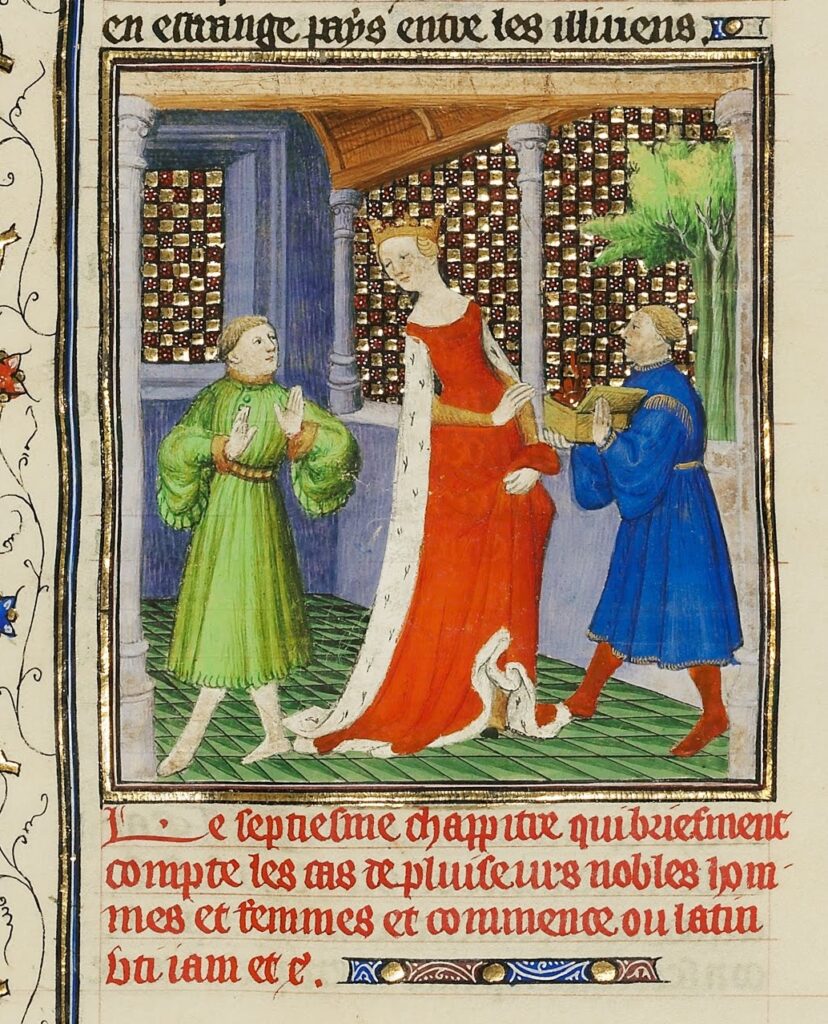 en estrange pays entre les illiriens.
Le septiesme chappitre qui briefment
compte les cas de pluiseurs nobles hom-
mes et femmes et commence ou latin
vti iam et c̃.